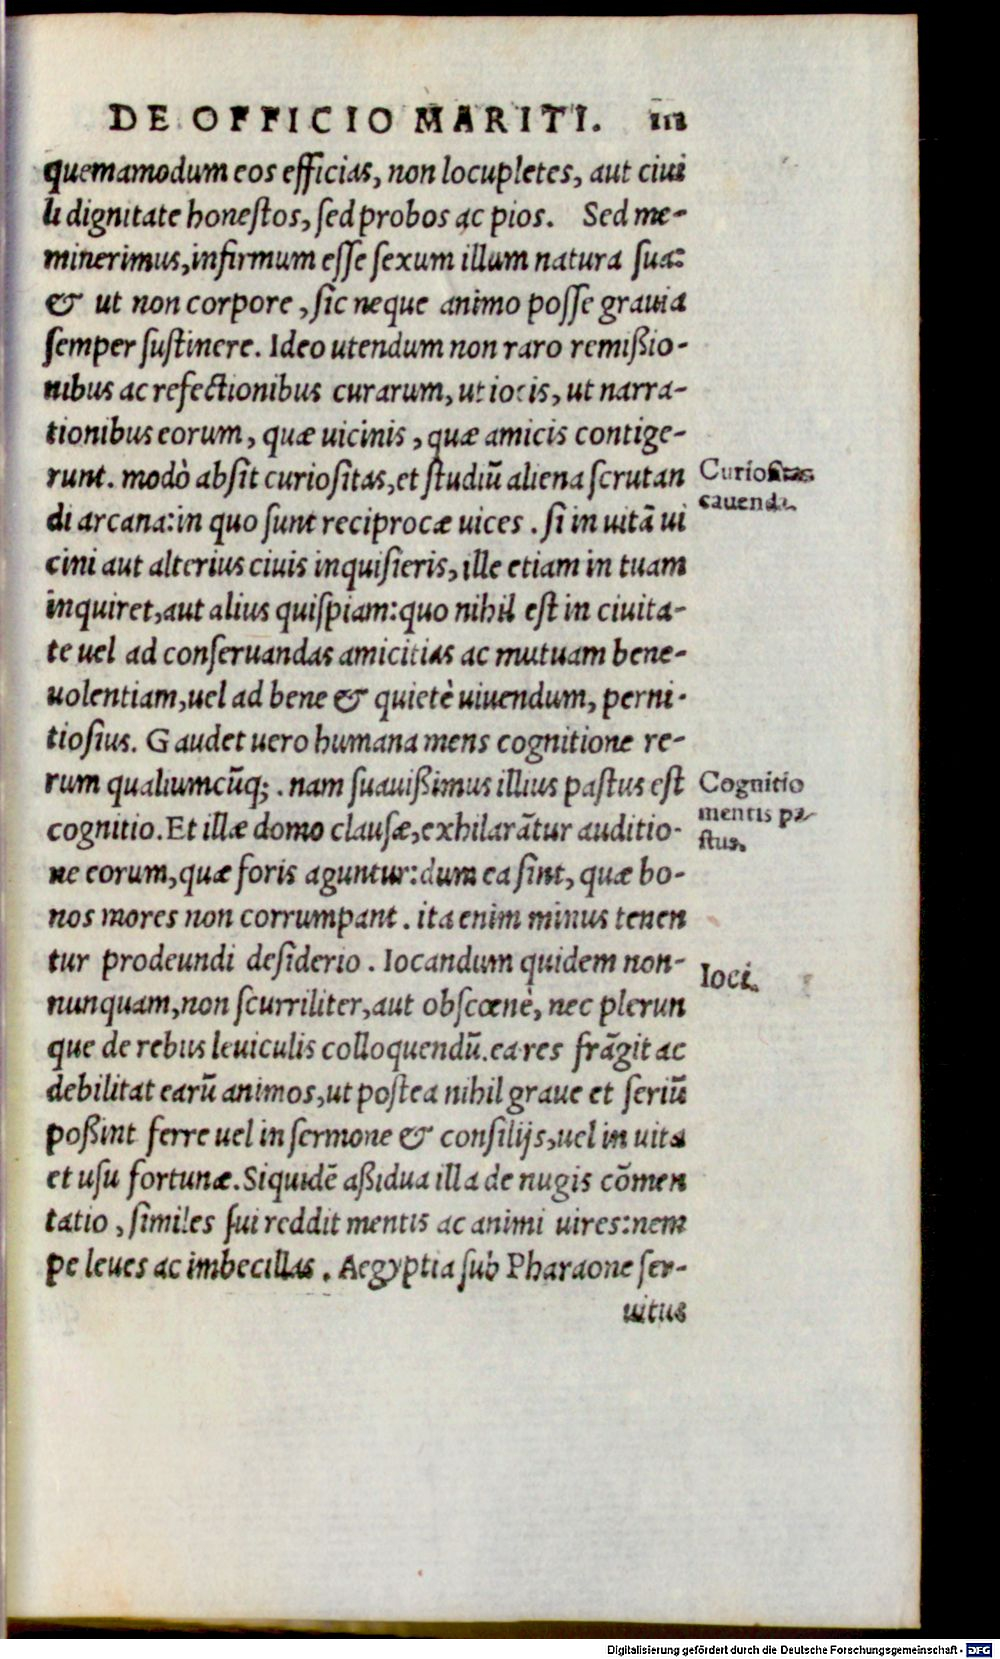 DE OFFICIO MARITI. 111
quemamodum eos efficias, non locupletes, aut ciui
li dignitate honeſtos, ſed probos ac pios. Sed me-
minerimus, infirmum eſſe ſexum illum natura ſua:
& ut non corpore, ſic neque animo poſſe grauia
ſemper ſuſtinere. Ideo utendum non raro remiſſio-
nibus ac refectionibus curarum, ut iocis, ut narra-
tionibus eorum, quæ uicinis, quæ amicis contige-
runt. modò abſit curioſitas, et ſtudiũ aliena ſcrutan
di arcana: in quo ſunt reciprocæ uices. ſi in uitã ui
cini aut alterius ciuis inquiſieris, ille etiam in tuam
inquiret, aut alius quiſpiam: quo nihil eſt in ciuita-
te uel ad conſeruandas amicitias ac mutuam bene-
uolentiam, uel ad bene & quietè uiuendum, perni-
tioſius. Gaudet uero humana mens cognitione re-
rum qualiumcũq;. nam ſuauißimus illius paſtus eſt
cognitio. Et illæ domo clauſæ, exhilarãtur auditio-
ne eorum, quæ foris aguntur: dum ea ſint, quæ bo-
nos mores non corrumpant. ita enim minus tenen
tur prodeundi deſiderio. Iocandum quidem non-
nunquam, non ſcurriliter, aut obſcœnè, nec plerun
que de rebus leuiculis colloquendũ. ea res frãgit ac
debilitat earũ animos, ut poſtea nihil graue et ſeriũ
poßint ferre uel in ſermone & conſilijs, uel in uita
et uſu fortunæ. Siquidẽ aßidua illa de nugis cõmen
tatio, ſimiles ſui reddit mentis ac animi uires: nem
pe leues ac imbecillas. Aegyptia ſub Pharaone ſer-
uitus
Curioſitas
cauenda.
Cognitio
mentis pa-
ſtus.
Ioci.
Digitalisierung gefördert durch die Deutsche Forschungsgemeinschaft - DFG